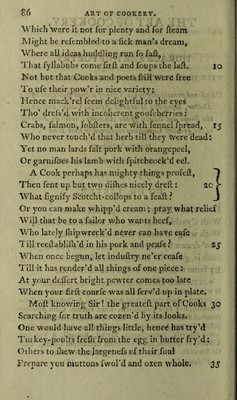 86 ART OF COOKERY.
Which were it not for plenty and for steam
Might be resembled to a sick man's dream,
Where all ideas huddling run so fast,
That syllabubs come first and soups the last. 10
Not but that Cooks and poets still were free
To use their pow'r in nice variety;
Hence mack'rel seem delightful to the eyes
Tho' dress'd with incoherent gooseberries:
Crabs, salmon, lobsters, are with fennel spread, 15
Who never touch'd that herb till they were dead:
Yet no man lards salt pork with orangepeel,
Or garnishes his lamb with spitchcock'd eel.
A Cook perhaps has mighty things profest,
Then sent up but two dishes nicely drest: 20
What signify Scotch-collops to a feast?
Or you can make whipp'd cream; pray what relief
Will that be to a sailor who wants beef,
Who lately shipwreck'd never can have ease
Till reestablish'd in his pork and pease? 25
When once begun, let industry ne'er cease
Till it has render'd all things of one piece:
At your dessert bright pewter comes too late
When your first course was all serv'd up in plate.
Most knowing Sir! the greatest part of Cooks 30
Searching for truth are cozen'd by its looks.
One would have all things little, hence has try'd
Turkey-poults fresh from the egg in butter fry'd:
Others to shew the largeness of their soul
Prepare you muttons swol'd and oxen whole. 35